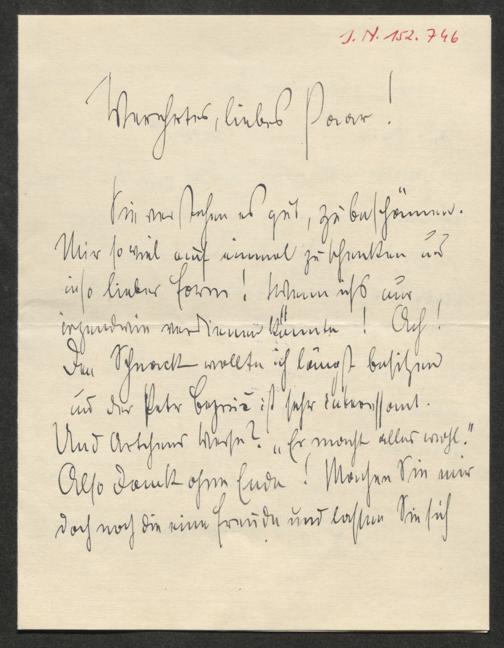 J. N. 152.746
Verehrtes, liebes Paar!
Sie verstehen es gut, zu beschämen.
Mir so viel auf einmal zu schenken und
in so lieber Form! Wenn ichs nur
irgendwie verdienen könnte! Ach!
Den Schnack wollte ich längst besitzen
und der Petr Bezruč ist sehr interessant.
Und Verse? „Er macht alles wohl."
Also Dank ohne Ende! Machen Sie mir
doch noch die eine Freude und lassen Sie sich